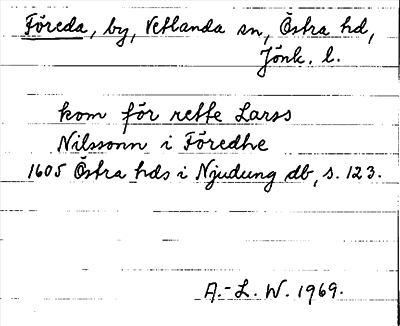 Föreda, by, Vetlanda sn, Östra hd,
Jönk. l.
kom för rette Larss
Nilssonn i Föredhe
1605 Östra hds i Njudung db, s. 123.
A.-L. W. 1969.